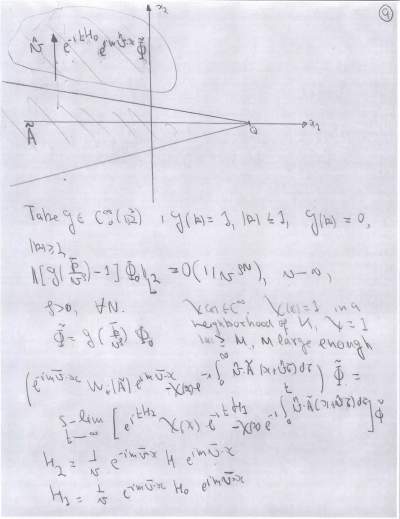 x₂
9
v̂ e^{-itH₀} e^{imv̄·x} Φ̃
x₁
Ã
Take g ∈ C₀^∞(ℝ²), g(p) = 1, |p| ≤ 1, g(p) = 0,
|p| ≥ 2,
‖[g(p̄/v^ρ) - 1] Φ₀‖_{L²} = O(1/v^{ρN}), v → ∞,
ρ>0, ∀N. χ(x) ∈ C^∞ χ(x) = 1 in a
neighborhood of
Φ̃ = g(p̄/v^ρ) Φ₀ |x| ≥ M, M large enough
(e^{-imv̄·x} W₊(Ã) e^{imv̄·x} - χ(x) e^{-i∫₀^∞ v̂·Ã(x+v̂τ)dτ}) Φ̃ =
s-lim_{t→∞} [e^{itH₂} χ(x) e^{-itH₁} - χ(x) e^{-i∫₀^t v̂·Ã(x+v̂τ)dτ}] Φ̃
H₂ = 1/v e^{-imv̄·x} H e^{imv̄·x}
H₁ = 1/v e^{-imv̄·x} H₀ e^{imv̄·x}